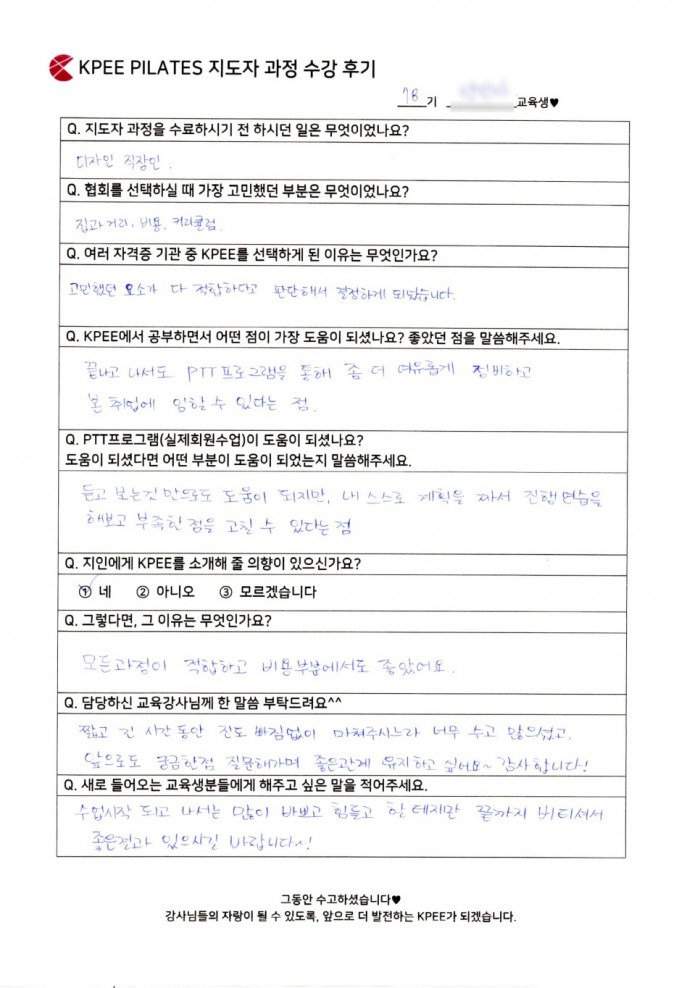 KPEE PILATES 지도자 과정 수강 후기
78 기 교육생♥
Q. 지도자 과정을 수료하시기 전 하시던 일은 무엇이었나요?
디자인 직장인.
Q. 협회를 선택하실 때 가장 고민했던 부분은 무엇이었나요?
집과 거리, 비용, 커리큘럼.
Q. 여러 자격증 기관 중 KPEE를 선택하게 된 이유는 무엇인가요?
고민했던 요소가 다 적합하다고 판단해서 결정하게 되었습니다.
Q. KPEE에서 공부하면서 어떤 점이 가장 도움이 되셨나요? 좋았던 점을 말씀해주세요.
끝나고 나서도 PTT프로그램을 통해 좀 더 여유롭게 정비하고
본 취업에 임할 수 있다는 점.
Q. PTT프로그램(실제회원수업)이 도움이 되셨나요?
도움이 되셨다면 어떤 부분이 도움이 되었는지 말씀해주세요.
듣고 보는것 만으로도 도움이 되지만, 내 스스로 계획을 짜서 진행연습을
해보고 부족한 점을 고칠 수 있다는 점
Q. 지인에게 KPEE를 소개해 줄 의향이 있으신가요?
① 네 ② 아니오 ③ 모르겠습니다
Q. 그렇다면, 그 이유는 무엇인가요?
모든과정이 적합하고 비용부분에서도 좋았어요.
Q. 담당하신 교육강사님께 한 말씀 부탁드려요^^
짧고 긴 시간동안 진도 빠짐없이 마쳐주시느라 너무 수고 많으셨고,
앞으로도 궁금한점 질문해가며 좋은관계 유지하고 싶어요~ 감사합니다!
Q. 새로 들어오는 교육생분들에게 해주고 싶은 말을 적어주세요.
수업시작 되고 나서는 많이 바쁘고 힘들고 할 테지만 끝까지 버티셔서
좋은결과 있으시길 바랍니다~!
그동안 수고하셨습니다♥
강사님들의 자랑이 될 수 있도록, 앞으로 더 발전하는 KPEE가 되겠습니다.